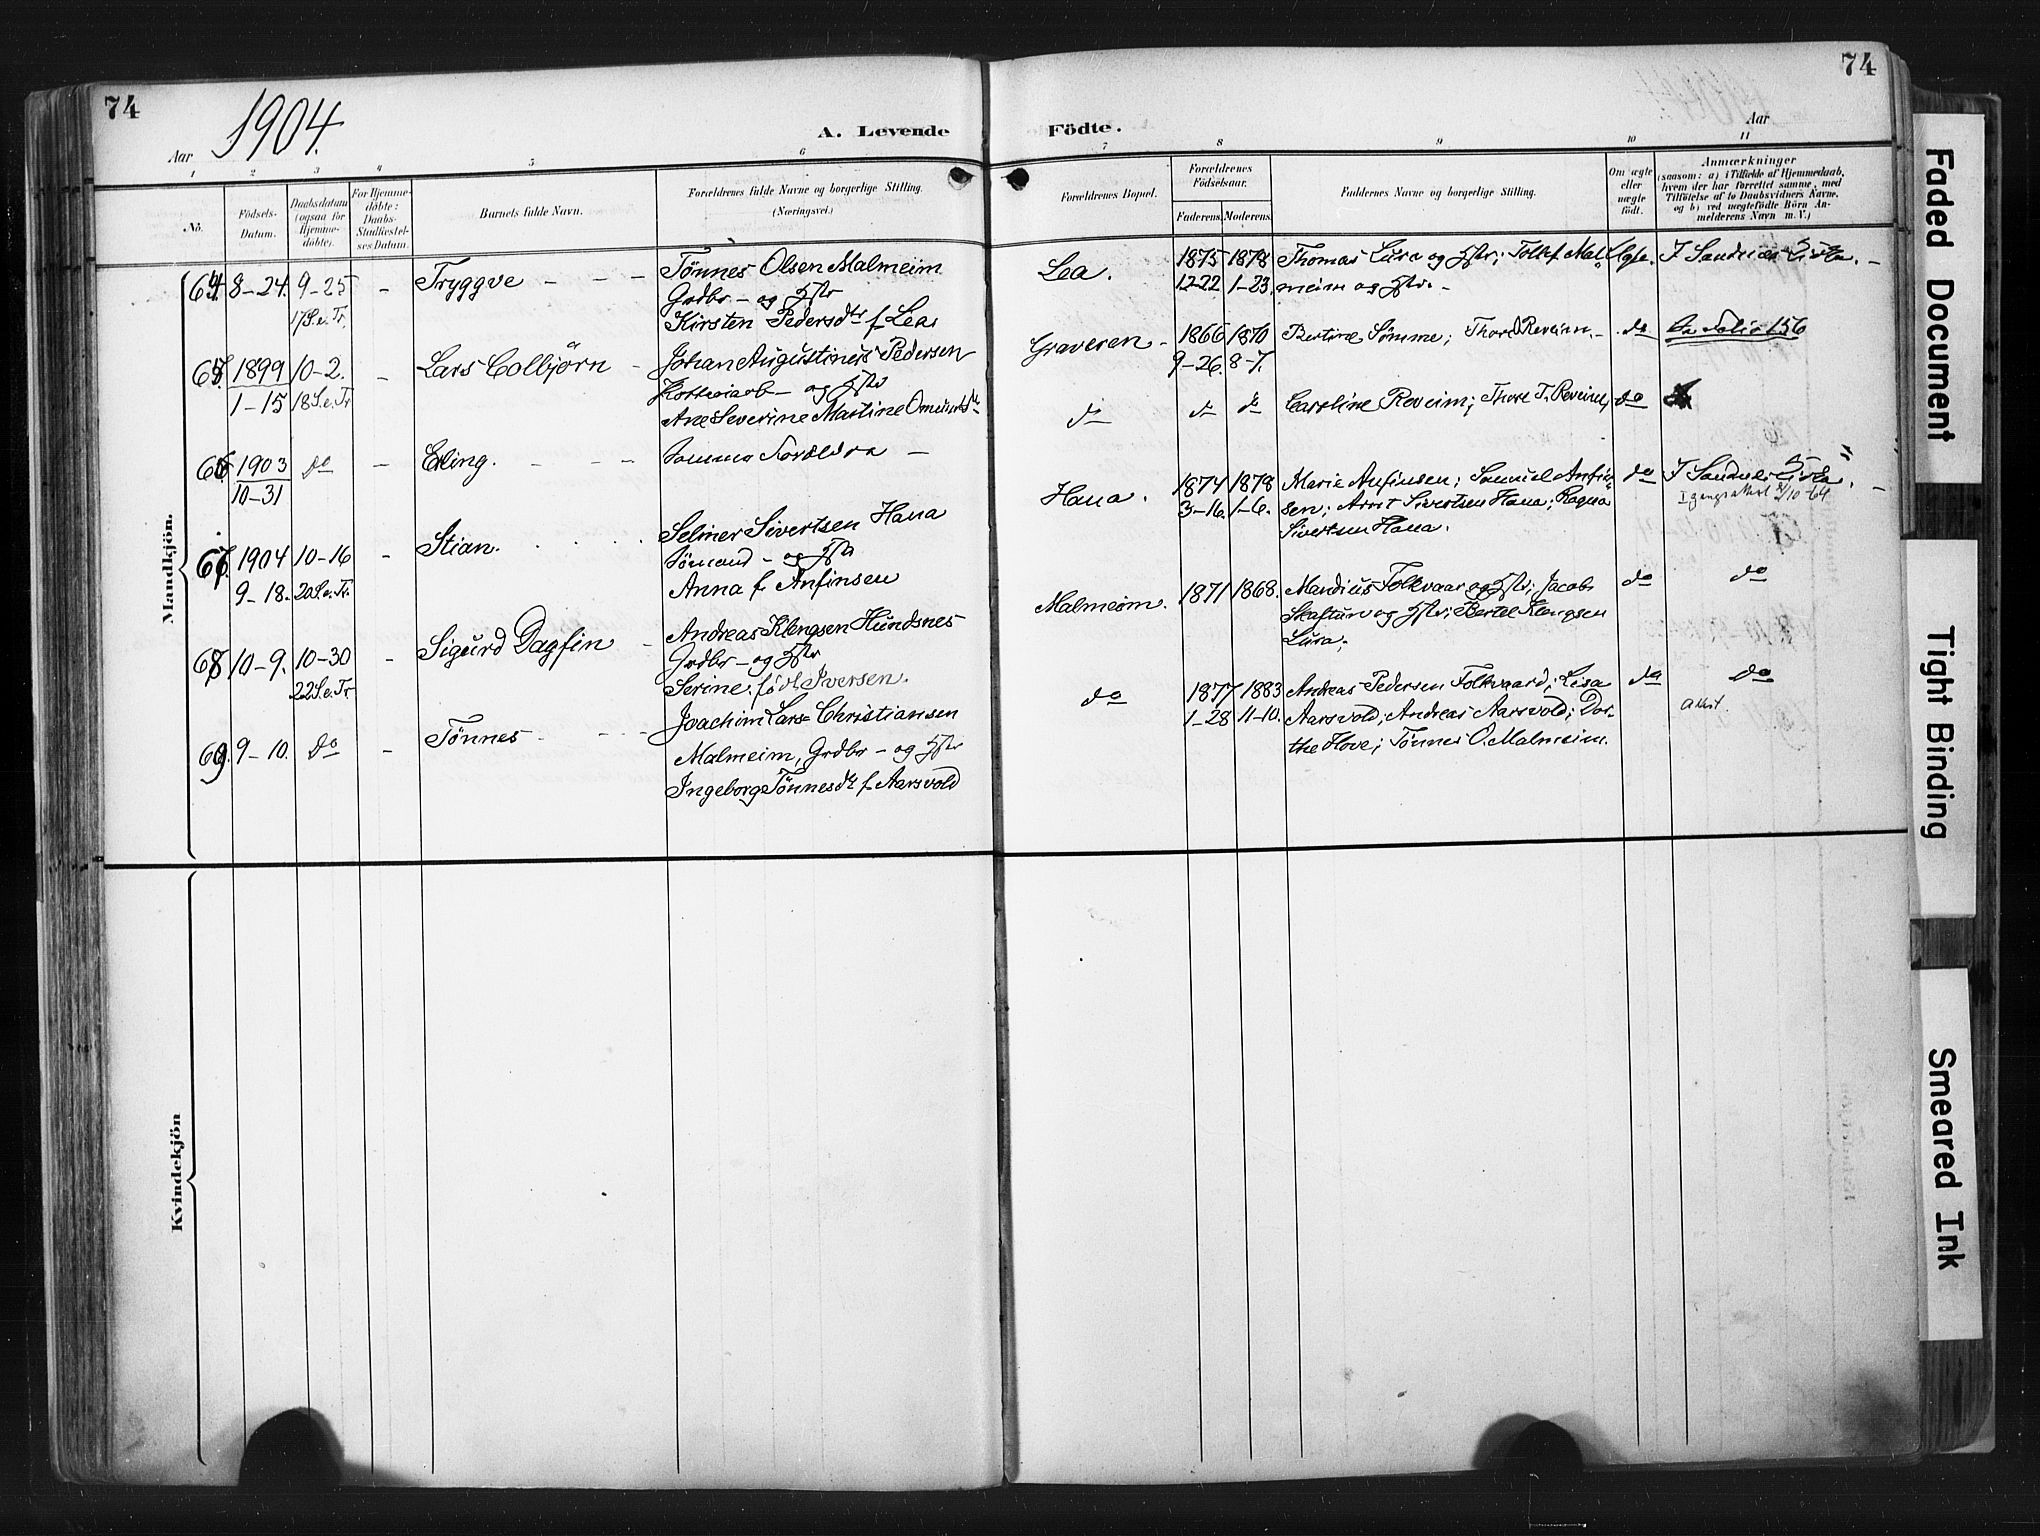 74
1904.
A. Levende
Aar
1 2 3 4 5 6
No.
Fødsels-
Datum.
Daabsdatum
(ogsaa for
Hjemme-
döbte).
For Hjemme-
döbte:
Daabs-
Stadfæstel-
ses Datum.
Barnets fulde Navn.
Forældrenes fulde Navne og borgerlige Stilling.
(Næringsvei.)
Mandkjön.
64. 8-24. 9-25 - Tryggve - - - Tönnes Olsen Malmeim
17 S. e. Tr. Grdbr - og Hstr
Kirsten Pedersdtr f. Lea
65. 1899 10-2. - Lars Colbjörn - Johan Augustinus Pedersen
1-15 18 S. e. Tr. og Hstr
Ane Severine Martine Omundsdtr
66. 1903 Do - Erling. - - - Samme Foreldra -
10-31
67. 1904 10-16 - Stian. Selmer Sivertsen Hana
9-18. 20 S. e. Tr. Sömand - og Hstr
Anna f. Anfinsen
68. 10-9. 10-30 - Sigurd Dagfin - Andreas Klengsen Hundsnes
22 S. e. Tr. Grdbr - og Hstr
Serine født Iversen.
69. 9-10. Do - Tönnes - - - Joachim Lars Christiansen
Malmeim, Grdbr - og Hstr
Ingeborg Tönnesdtr f. Aarsvold
Kvindekjön
74
Födte.
Aar
7 8 9 10 11
Forældrenes Bopæl.
Forældrenes
Födselsaar.
Faderens. Moderens.
Faddernes Navne og borgerlige Stilling.
Om ægte
eller
uægte
födt.
Anmærkninger
(saasom: a) i Tilfælde af Hjemmedaab,
hvem der har forrettet samme, med
Tilföielse af to Daabsvidners Navne,
og b) ved uægtefödte Börn An-
melderens Navn m. V.)
Lea. 1875 1878 Thomas Lura og Hstr; Tollef Mal- I Sandnes Kirke. -
12-22 1-23. meim og Hstr. -
Graveren - 1866 1870 Bertine Sömme; Thord Reveim. - do Folio 156
9-26. 8-7.
do do do Caroline Reveim; Thore T. Reveim, do
Hana. 1874 1878 Marie Anfinsen; Samuel Anfin- do I Sandnes Kirke. -
3-16. 1-6. sen; Arnt Sivertsen Hana; Ragna
Sivertsen Hana.
Malmeim. 1871 1868. Mandius Folkvaar og Hstr; Jacob do do
og Hstr; Bertel Klengsen
Lura;
do 1877 1883 Andreas Pedersen Folkvaard; Lisa do do
1-28 11-10. Aarsvold; Andreas Aarsvold; Dor- attest.
the Hove; Tönnes O. Malmeim.
Faded Document
Tight Binding
Smeared Ink